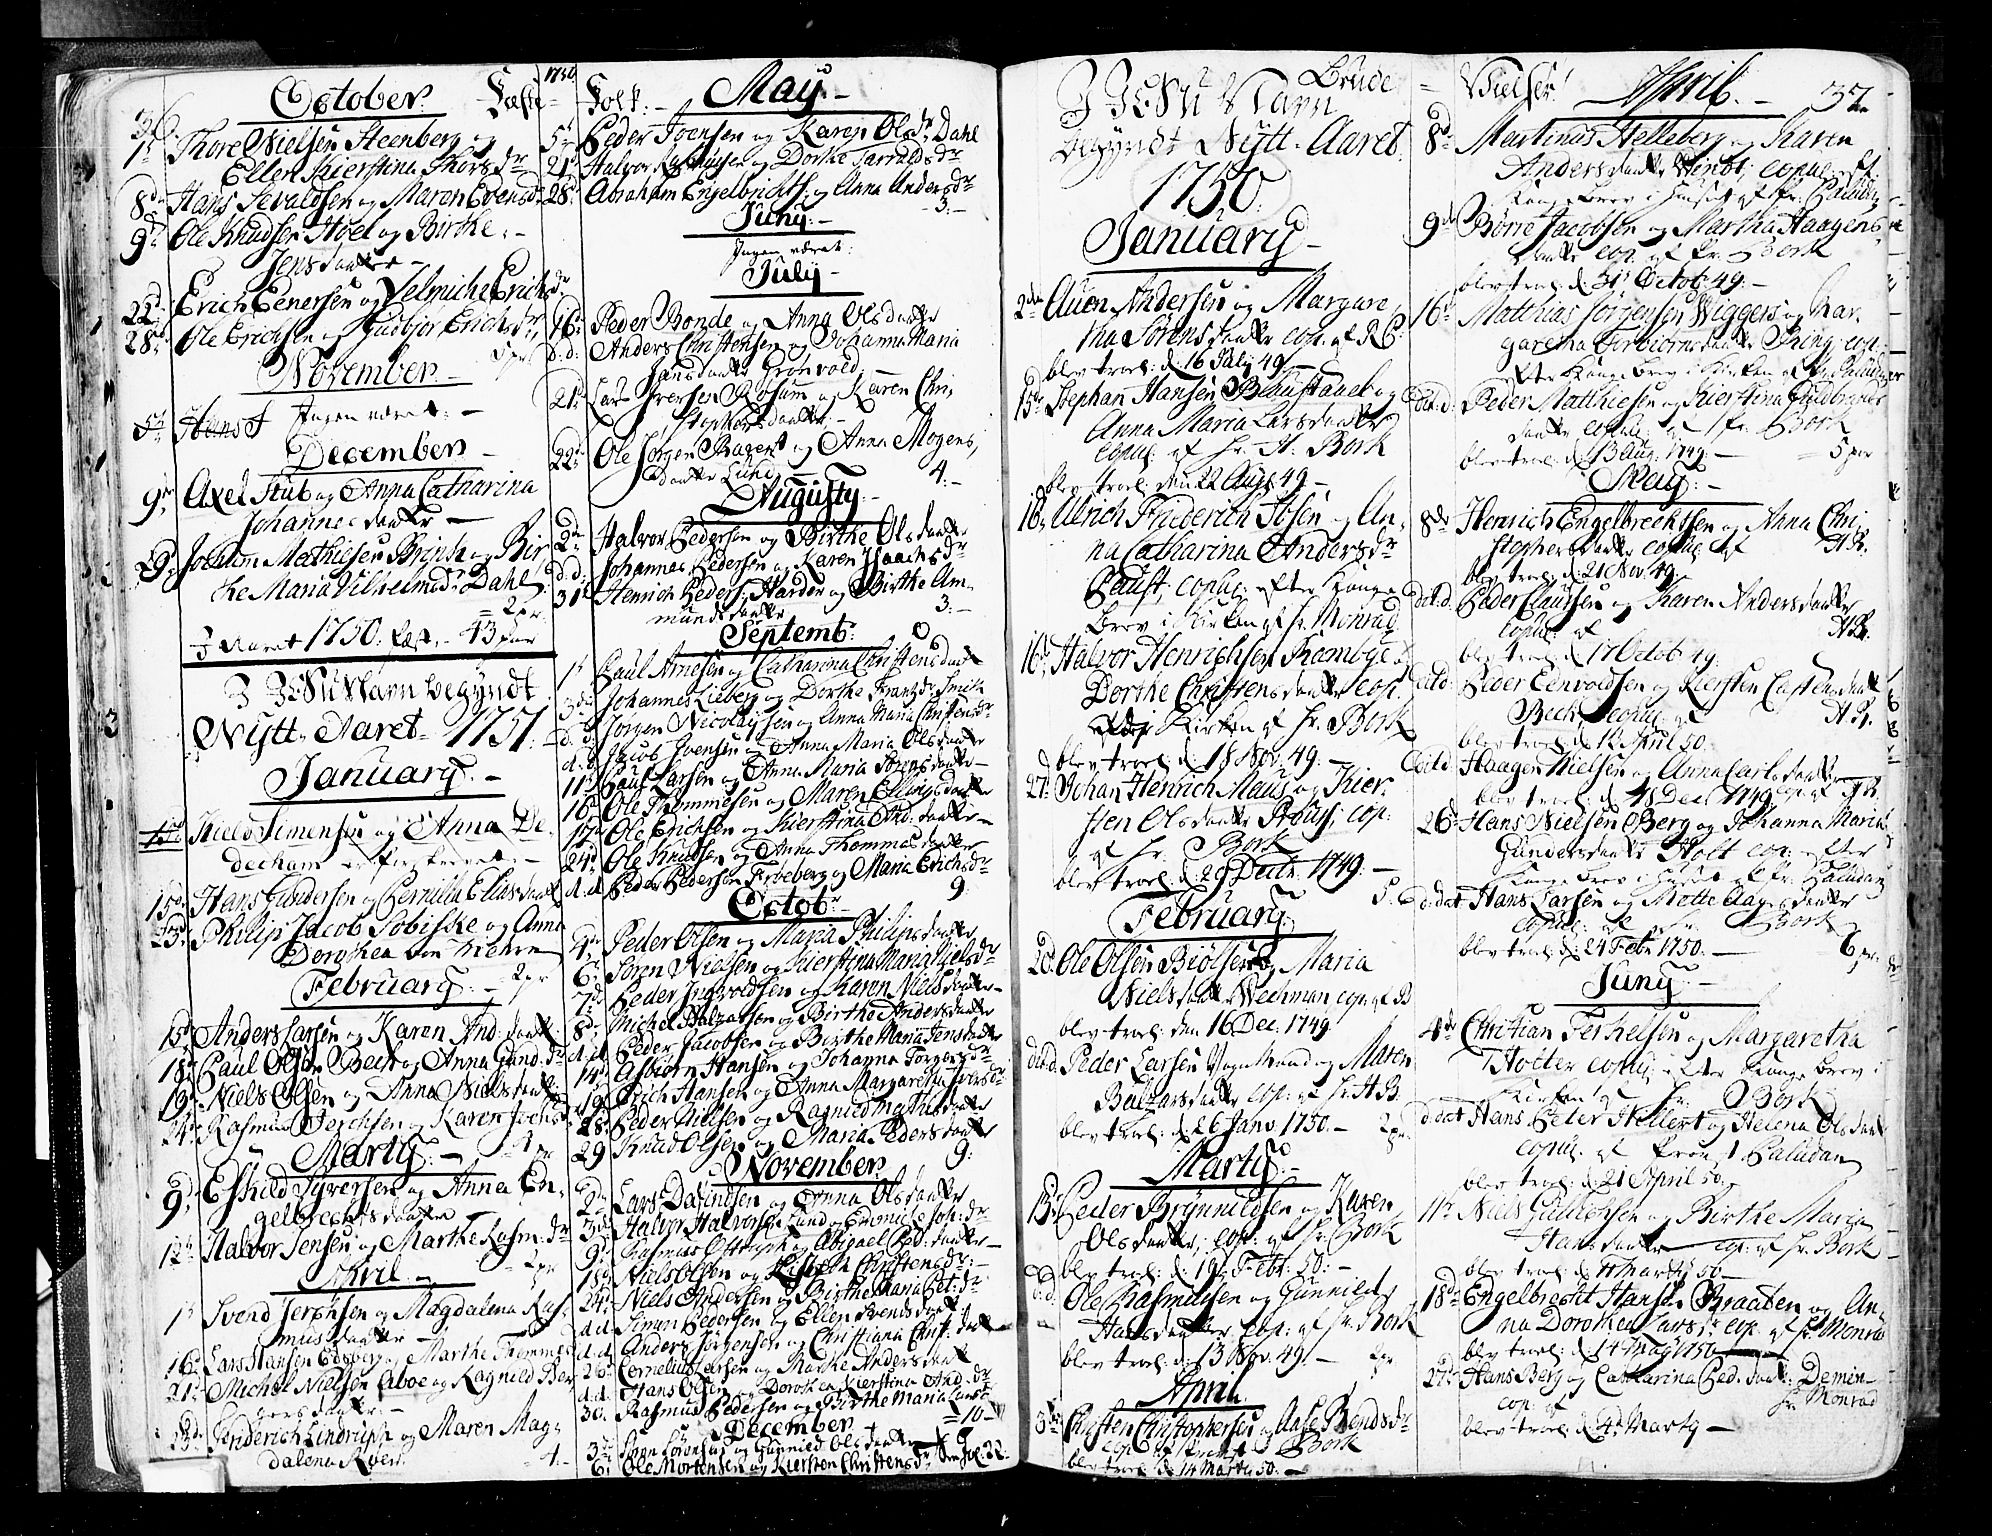 36.
October. Fæste
1t Thore Nielsen Steenberg og
Ellen Kierstina Thorsdr
8de Hans Sevaldsen og Maren Evensdr
9d Ole Knudsen Hoel og Birthe
Jensdaatter
22d Erich Eenersen og Velmiche Erichsdr
28d Ole Erichsen og Gudbjør Erichsdr
5 pr
November.
5t Hans Ingen været:
December
9de Axel Stub og Anna Catharina
Johannesdaatter
29. Jochum Mathiesen Brinch og Bir
the Maria Vilhelmsdr Dahl
2 pr
I Aaret 1750. fæst. 43 par
I JEsu Navn begyndt
Nytt-Aaret 1751.
January.
Kield Simensen og Anna De
15de Hans Gundersen og Pernille Eliasdaatt
23d Philip Jacob Sobiske og Anna
Dorothea von
February. 2 pr
15d Anders Larsen og Karen And:daatt:
18d Paul Olsen Bech og Anna Gund:dr
19d Niels Olsen og Anna Nielsdaatter
24 Rasmus og Karen
Marty. 4 pr
9d Eskild Syversen og Anna En,
gelbrechtsdaatter
12t Halvor Jensen og Marthe Rasm:dr
2 pr
April.
1t Svend og Magdalena Ras,
musdaatter
16d Lars Hansen Edsberg og Marthe Thommes
21t Michel Nielsen Aboe og Ragnild Ber
gersdaatter
Frederich Lindrup og Maren Mag,
dalena
4.
1750
Folk. May.
5t Peder Joensen og Karen Olsdr Dahl
21t Halvor Rasmusen og Dorthe Tarraldsdr
28d Abraham Engelbrichts. og Anna Andersdr
3.
Juny.
Ingen været:
July
16d Peder Bonde og Anna Olsdaatter
d:d: Anders Christensen og Johanna Maria
Jansdaatter Grønvold
21t Lars Iversen Rosum og Karen Chri,
stophersdaatter
22d Ole Jørgen og Anna Mogens,
daatter Lund
4.
Augusty.
2d Halvor Pedersen og Birthe Olsdaatter
d:d: Johannes Pedersen og Karen Isaachsdr
31t Henrich Peders: Harder og Birthe Am-
mundsdaatter
3.
Septemb:
1t Paul Arnesen og Catharina Christensdaatt
3de Johannes Lieberg og Dorthe Frantzdr Smith
d:d Jørgen Nicolaysen og Anna Maria Christensdr
d:d Jacob Svensen og Anna Maria Olsdaatter
11t Paul Larsen og Anna Maria Sørensdaatter
16d Ole Thommesen og Maren Ellwigsdaatter
17d Ole Erichsen og Kierstina And:daatter
24d Ole Knudsen og Anna Thommasdaatter
d.d Peder Pedersen Froeberg og Maria Erichsdr
9.
Octob:
4de Peder Olsen og Maria Philipsdaatter
6t Søren Nielsen og Kierstina Maria Nielsdr
7d Peder Ingvoldsen og Karen Nielsdaatter
8d Michel Balzarsen og Birthe Andersdaatter
d.d. Peder Jacobsen og Birthe Maria Jensdaatter
14d Asbiørn Hansen og Johanna Jørgensdr
19d Erich Hansen og Anna Margaretha Iversdr
28d Peder Nielsen og Ragnild
29 Knud Olsen og Maria Pedersdaatter
9.
November.
2d Lars og Anna Olsdaatter
3d Halvor Halvorsen Lund og Emmiche Joh:dr
9d Rasmus og Abigael Ped:daatter
18d Niels Olsen og Lisbeth Christensdr:
24d Niels Andersen og Birthe Maria Pet:dr
d.d. Simen Pedersen og Ellen Svendsdaatt
d.d. Anders Jørgensen og Christiana Christ:datt
26d Cornelius Larsen og Marthe Andersdaatt
d.d. Hans Olsen og Dorothea Kierstina And:dr
30. Rasmus Pedersen og Birthe Maria Larsdr
10
December
3d Søren og Gunnild Olsdaatter
6t Ole Mortensen og Kiersten Christensdr
Brude
I JESu Navn
begyndt Nytt-Aaret
1750.
January
2den Auen Andersen og Margare,
tha Sørensdaatter cop. af R.P.
blev trol: d: 16 July 49.
15de Stephan Hansen og
Anna Maria Larsdaatter
copul: af hr. H. Bork
blev trol: den 22 Aug: 49
16d Ulrich Friderich Ibsen og An,
na Catharina Andersdr
Faust, copul: efter Konge
brev i Kirken af hr. Monrad
16d Halvor Henrichsen Ramvge og
Dorthe Christensdaatter cop.
i Kirken af hr. Bork
blev trol: d. 18 Nov. 49.
27. Johan Henrich Maus og Kier,
sten Olsdaatter cop:
af hr. Bork
blev trol: d: 29 Decbr. 1749.
5.
February.
20d: Ole Olsen Biølsen og Maria
Nielsdaatter Wechman cop. af B
blev trol: den 16 Dec: 1749
dito d. Peder Larsen Vogn Mand og Maren
Balzarsdaatter cop: af hr. H.B.
blev trol: d: 26 Janv. 1750. 2 pr
Marty.
13d: Peder Brynnildsen og Karen
Olsdaatter, cop: af hr. Bork
blev trol: d: 19 Febr. 50.
d.d. Ole Rasmussen og Gunnild
Hansdaatter cop: af hr. Bork
blev trol: d: 13 Nov. 49. 2 pr
April.
3d Christen Christophersen og Aase Bendsdr
cop. af Bork
blev trol: d: 14 Marty 50.
Vielser. April. 37
8d: Martinus Helleberg og Karen
Andersdaatter copul: eft:
Konge brev i Huset af Pr: Paludan
9de Børre Jacobsen og Martha Haagens
daatter cop. af Pr. Bork
blev trol: d. 31t Octob: 49.
16d Matthias Jørgensen Wiggers og Mar,
garetha Torbiørnsdaatter Ring cop.
efter Konge brev i Kirken af Pr. Paludan
dit:d: Peder Matthiesen og Kierstina Gudbrands
daatter copul: af hr. Bork
blev trol: d. 13 Aug: 1749. 5 par
May.
8de Henrich Engelbrechtsen og Anna Chri,
stophersdaatter copul: af H.B.
blev trol: d: 21 Nov. 49
dit.d. Peder Claussen og Karen Andersdaatter
copul: af H.B.
blev trol: d: 17 Octob: 49.
dit:d: Peder Eenvoldsen og Kiersten Castensdaatt
Bech copul: af H.B.
blev trol: d: 12 April 50.
dit:d: Haagen Nielsen og Anna Carlsdaatter
blev trol: d. 18 Dec. 1749 cop. af H.B.
26d Hans Nielsen Berg og Johanna Maria
Gundersdaatter Holt cop. efter
Konge brev i Huset af Pr: Paludan
d:dat Hans Larsen og Mette Aagesdaatter
copul: af hr. Bork
blev trol: d: 24 Febr. 1750. 6 pr.
Juny
4de Christian Terkelsen og Margaretha
Holter copul: efter Konge brev i
Kirken af hr. Bork
d:dat Hans Peter Hellert og Helena Olsdaatt
copul: af Provst Paludan
blev trol: d: 21 April 50.
11te Niels Gulbrandsen og Birthe Maria
Hansdaatter cop: af hr. Bork
blev trol: d: 11 Marty 50
18de Engelbrecht Hansen Braaten og An,
na Dorothea Larsdr cop. af hr. Monrad
blev trol: d. 14 May 1750
27de Hans Berg og Catharina Ped.daatt: Demin
cop. af hr. Monrad
blev trol: d. 4d Marty